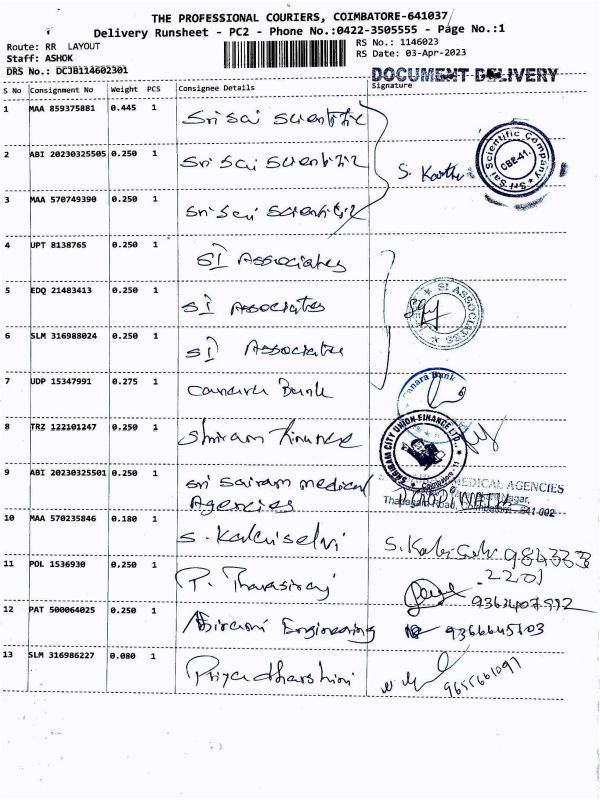 THE PROFESSIONAL COURIERS, COIMBATORE-641037
Delivery Runsheet - PC2 - Phone No.:0422-3505555 - Page No.:1
Route: RR LAYOUT
RS No.: 1146023
Staff: ASHOK
RS Date: 03-Apr-2023
DRS No.: DCJB114602301
DOCUMENT DELIVERY
S No Consignment No Weight PCS Consignee Details Signature
1 MAA 859375881 0.445 1 Sri Sai Scientific
2 ABI 20230325505 0.250 1 Sri Sai Scientific S. Karthi
Sri Sai Scientific Company CBE-41.
3 MAA 570749390 0.250 1 Sri Sai Scientific
4 UPT 8138765 0.250 1 SI Associates
5 EDQ 21483413 0.250 1 SI Associates
SI ASSOCIATES
6 SLM 316988024 0.250 1 SI Associates
7 UDP 15347991 0.275 1 Canara Bank
Canara Bank
8 TRZ 122101247 0.250 1 Shriram Finance
SHRIRAM CITY UNION FINANCE LTD.,
Coimbatore - 11
9 ABI 20230325501 0.250 1 Sri Sairam Medical
Agencies
MEDICAL AGENCIES
Nagar,
Thadagam Road, 641 002
10 MAA 570235846 0.180 1 S. Kalaiselvi
11 POL 1536930 0.250 1 P. Thavasiraj
12 PAT 500064025 0.250 1 Abirami Engineering 9366645103
13 SLM 316986227 0.080 1 Priyadharshini
9655661097